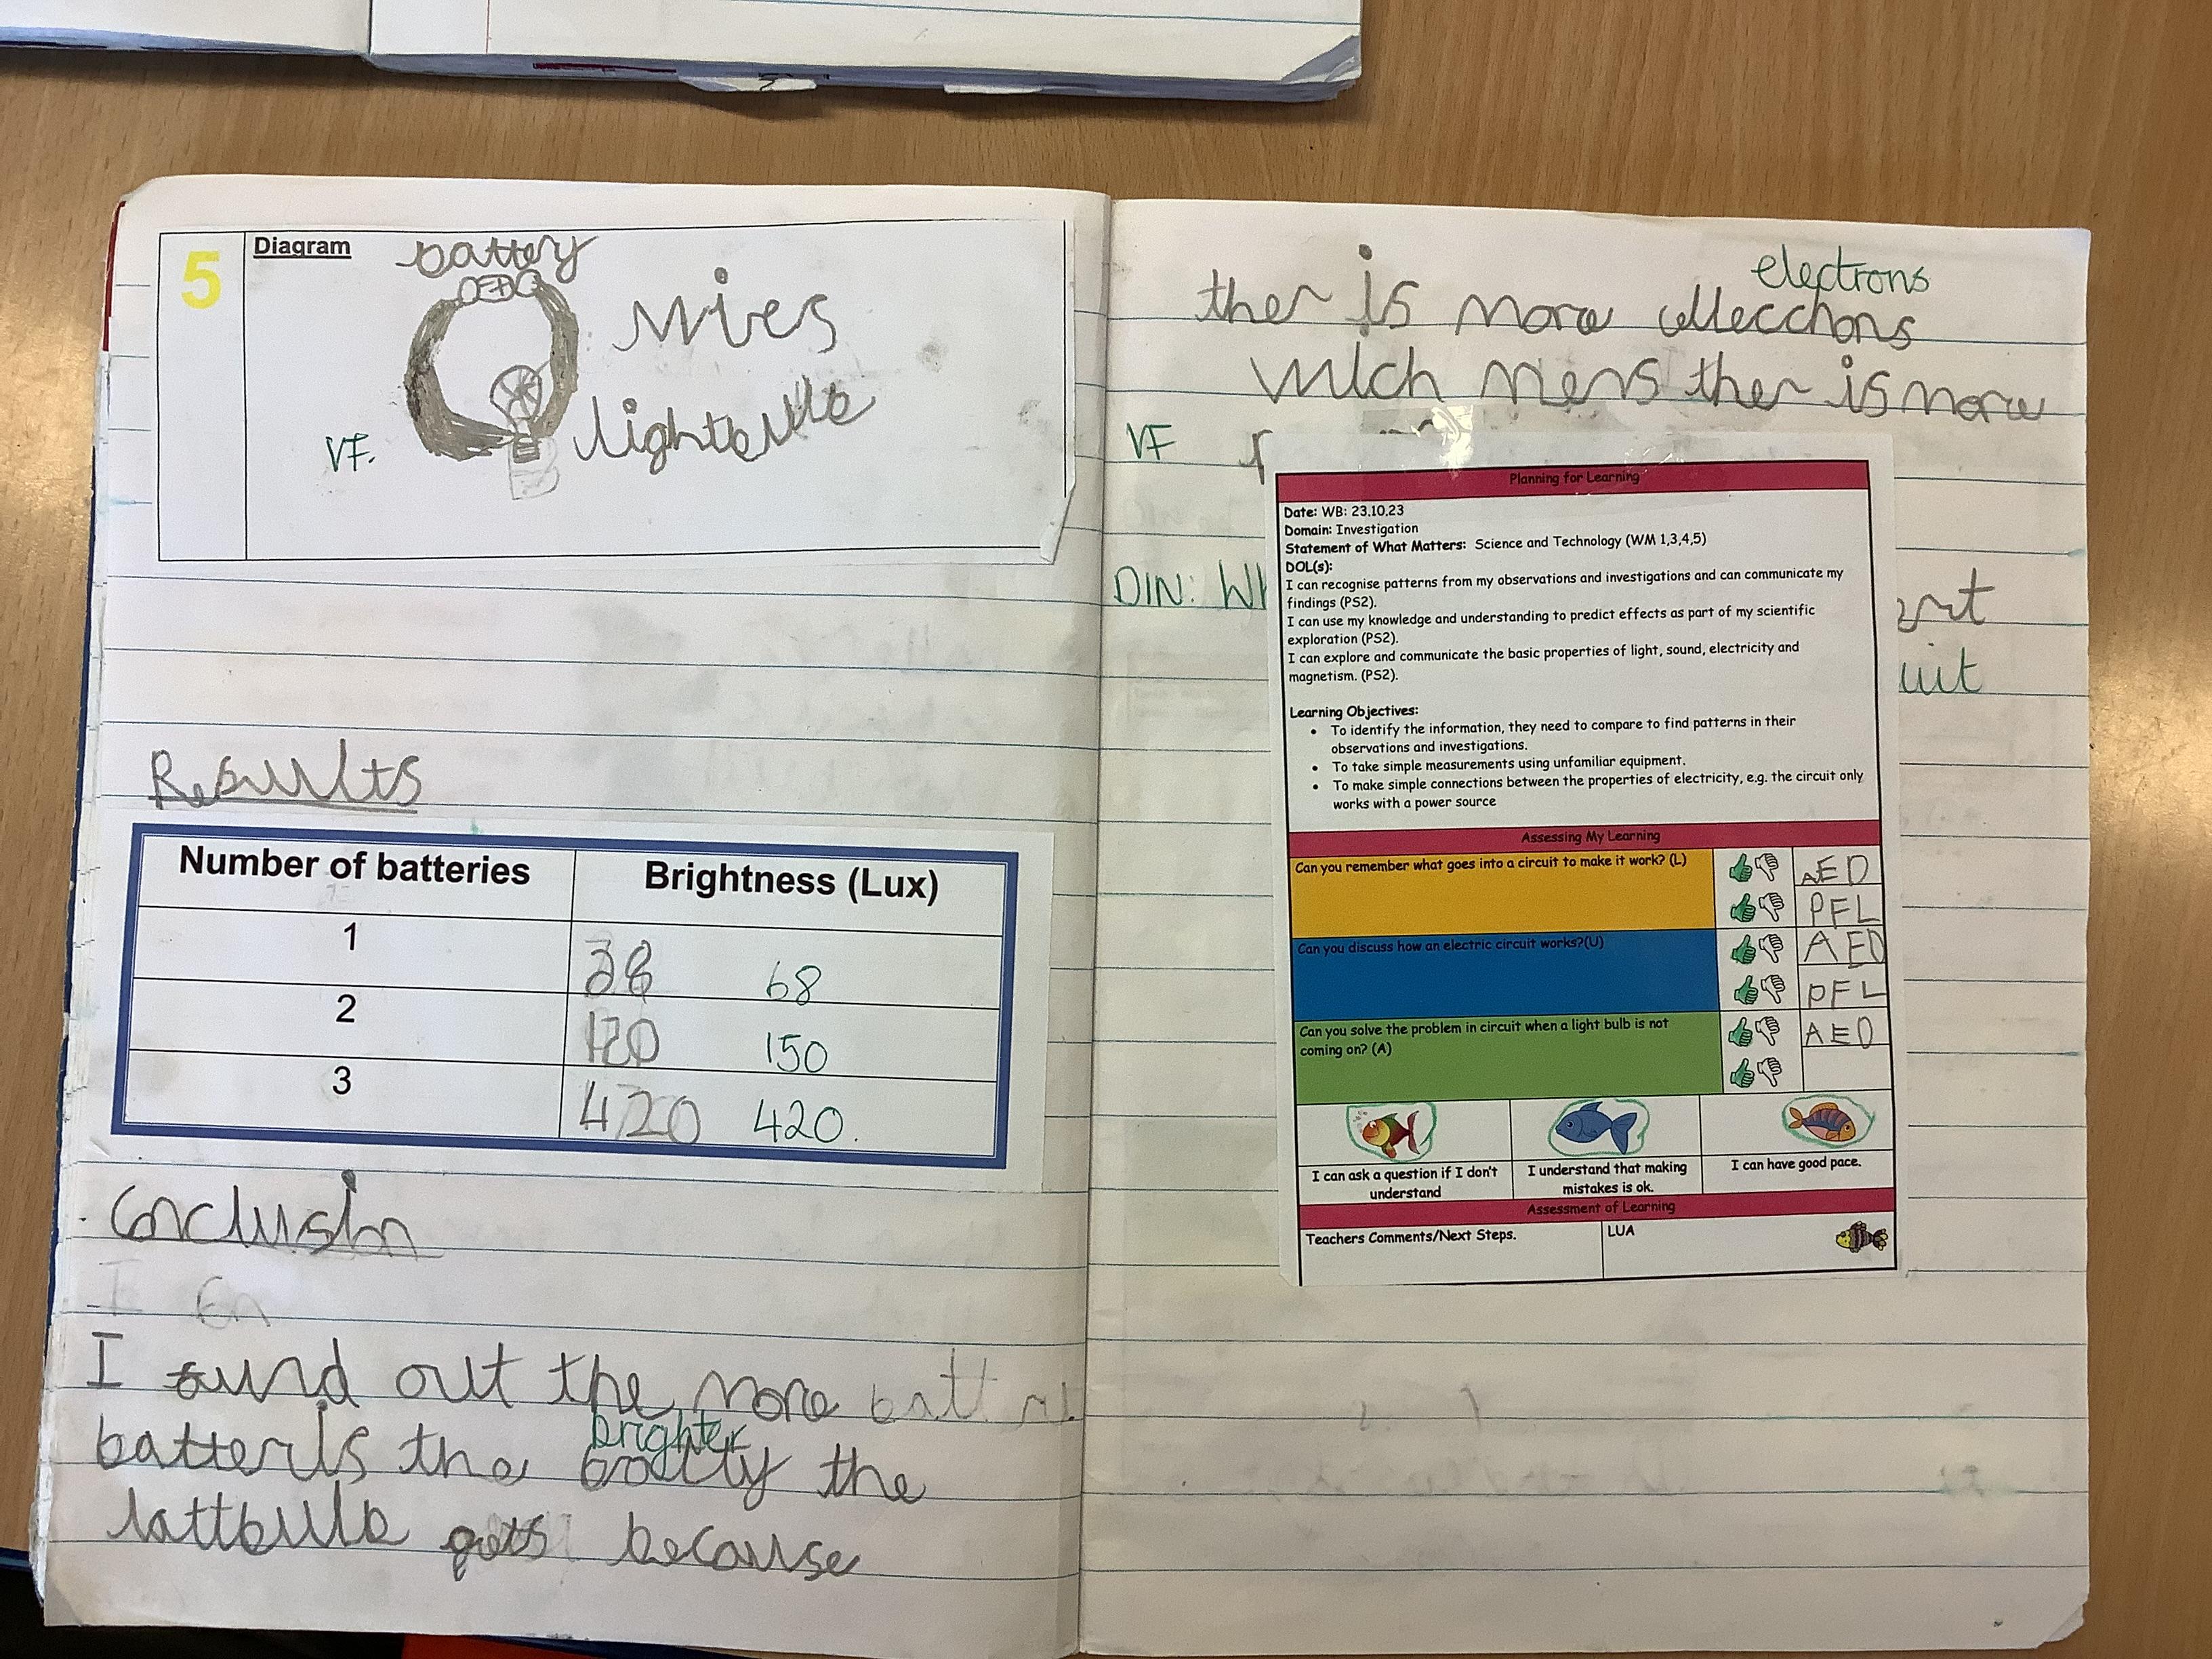 5
Diagram
battery
wires
VF.
Results
Number of batteries Brightness (Lux)
1 38 68
2 150
3 420 420.
Conclusion
I
I found out the more
brighter
batteris the the
gets because
electrons
ther is more
wich mens ther is more
VF
DIN:
uit
Planning for Learning
Date: WB: 23.10.23
Domain: Investigation
Statement of What Matters: Science and Technology (WM 1,3,4,5)
DOL(s):
I can recognise patterns from my observations and investigations and can communicate my
findings (PS2).
I can use my knowledge and understanding to predict effects as part of my scientific
exploration (PS2).
I can explore and communicate the basic properties of light, sound, electricity and
magnetism. (PS2).
Learning Objectives:
• To identify the information, they need to compare to find patterns in their
observations and investigations.
• To take simple measurements using unfamiliar equipment.
• To make simple connections between the properties of electricity, e.g. the circuit only
works with a power source
Assessing My Learning
Can you remember what goes into a circuit to make it work? (L) AED
PFL
Can you discuss how an electric circuit works?(U) AED
PFL
Can you solve the problem in circuit when a light bulb is not AED
coming on? (A)
I can ask a question if I don't
understand
I understand that making
mistakes is ok.
I can have good pace.
Assessment of Learning
Teachers Comments/Next Steps. LUA